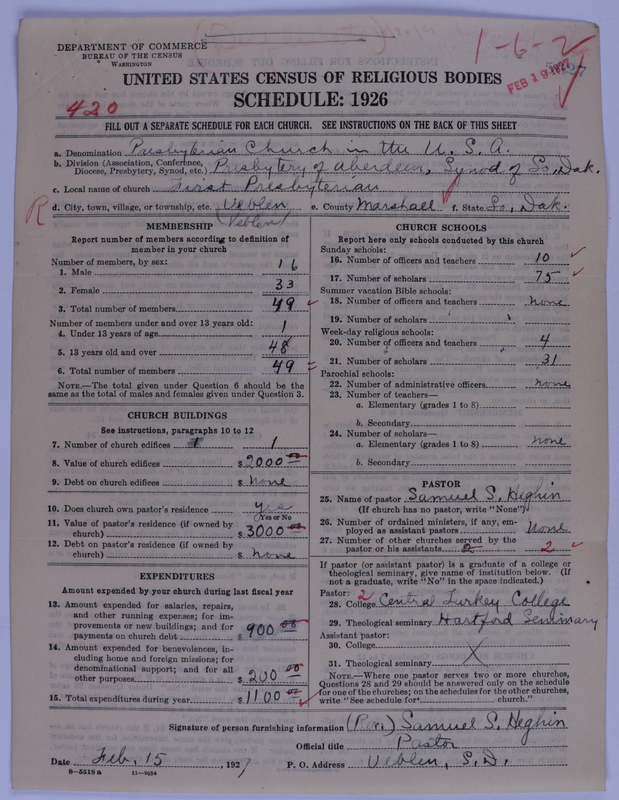 DEPARTMENT OF COMMERCE
BUREAU OF THE CENSUS
WASHINGTON
1-6-2
FEB 19 1927
UNITED STATES CENSUS OF RELIGIOUS BODIES
420
SCHEDULE: 1926
FILL OUT A SEPARATE SCHEDULE FOR EACH CHURCH. SEE INSTRUCTIONS ON THE BACK OF THIS SHEET
a. Denomination Presbyterian Church in the U. S. A.
b. Division (Association, Conference, Diocese, Presbytery, Synod, etc.) Presbytery of Aberdeen, Synod of So. Dak.
c. Local name of church First Presbyterian
R d. City, town, village, or township, etc. Veblen e. County Marshall f. State So. Dak.
(Veblen)
MEMBERSHIP
Report number of members according to definition of member in your church
Number of members, by sex:
1. Male 16
2. Female 33
3. Total number of members 49
Number of members under and over 13 years old:
4. Under 13 years of age 1
5. 13 years old and over 48
6. Total number of members 49
NOTE.—The total given under Question 6 should be the same as the total of males and females given under Question 3.
CHURCH BUILDINGS
See instructions, paragraphs 10 to 12
7. Number of church edifices 1
8. Value of church edifices $ 2000 00
9. Debt on church edifices $ None
10. Does church own pastor's residence yes
(Yes or No)
11. Value of pastor's residence (if owned by church) $ 3000 00
12. Debt on pastor's residence (if owned by church) $ None
EXPENDITURES
Amount expended by your church during last fiscal year
13. Amount expended for salaries, repairs, and other running expenses; for improvements or new buildings; and for payments on church debt $ 900 00
14. Amount expended for benevolences, including home and foreign missions; for denominational support; and for all other purposes $ 200 00
15. Total expenditures during year $ 1100 00
CHURCH SCHOOLS
Report here only schools conducted by this church
Sunday schools:
16. Number of officers and teachers 10
17. Number of scholars 75
Summer vacation Bible schools:
18. Number of officers and teachers None
19. Number of scholars
Week-day religious schools:
20. Number of officers and teachers 4
21. Number of scholars 31
Parochial schools:
22. Number of administrative officers none
23. Number of teachers—
a. Elementary (grades 1 to 8)
b. Secondary
24. Number of scholars—
a. Elementary (grades 1 to 8) none
b. Secondary
PASTOR
25. Name of pastor Samuel S. Heghin
(If church has no pastor, write "None")
26. Number of ordained ministers, if any, employed as assistant pastors None
27. Number of other churches served by the pastor or his assistants 2
If pastor (or assistant pastor) is a graduate of a college or theological seminary, give name of institution below. (If not a graduate, write "No" in the space indicated.)
Pastor: 2
28. College Central Turkey College
29. Theological seminary Hartford Seminary
Assistant pastor:
30. College
31. Theological seminary
NOTE.—Where one pastor serves two or more churches, Questions 28 and 29 should be answered only on the schedule for one of the churches; on the schedules for the other churches, write "See schedule for church."
Signature of person furnishing information (Rev.) Samuel S. Heghin
Official title Pastor
Date Feb. 15, 1927 P. O. Address Veblen, S.D.
8—5518 a 11—9054